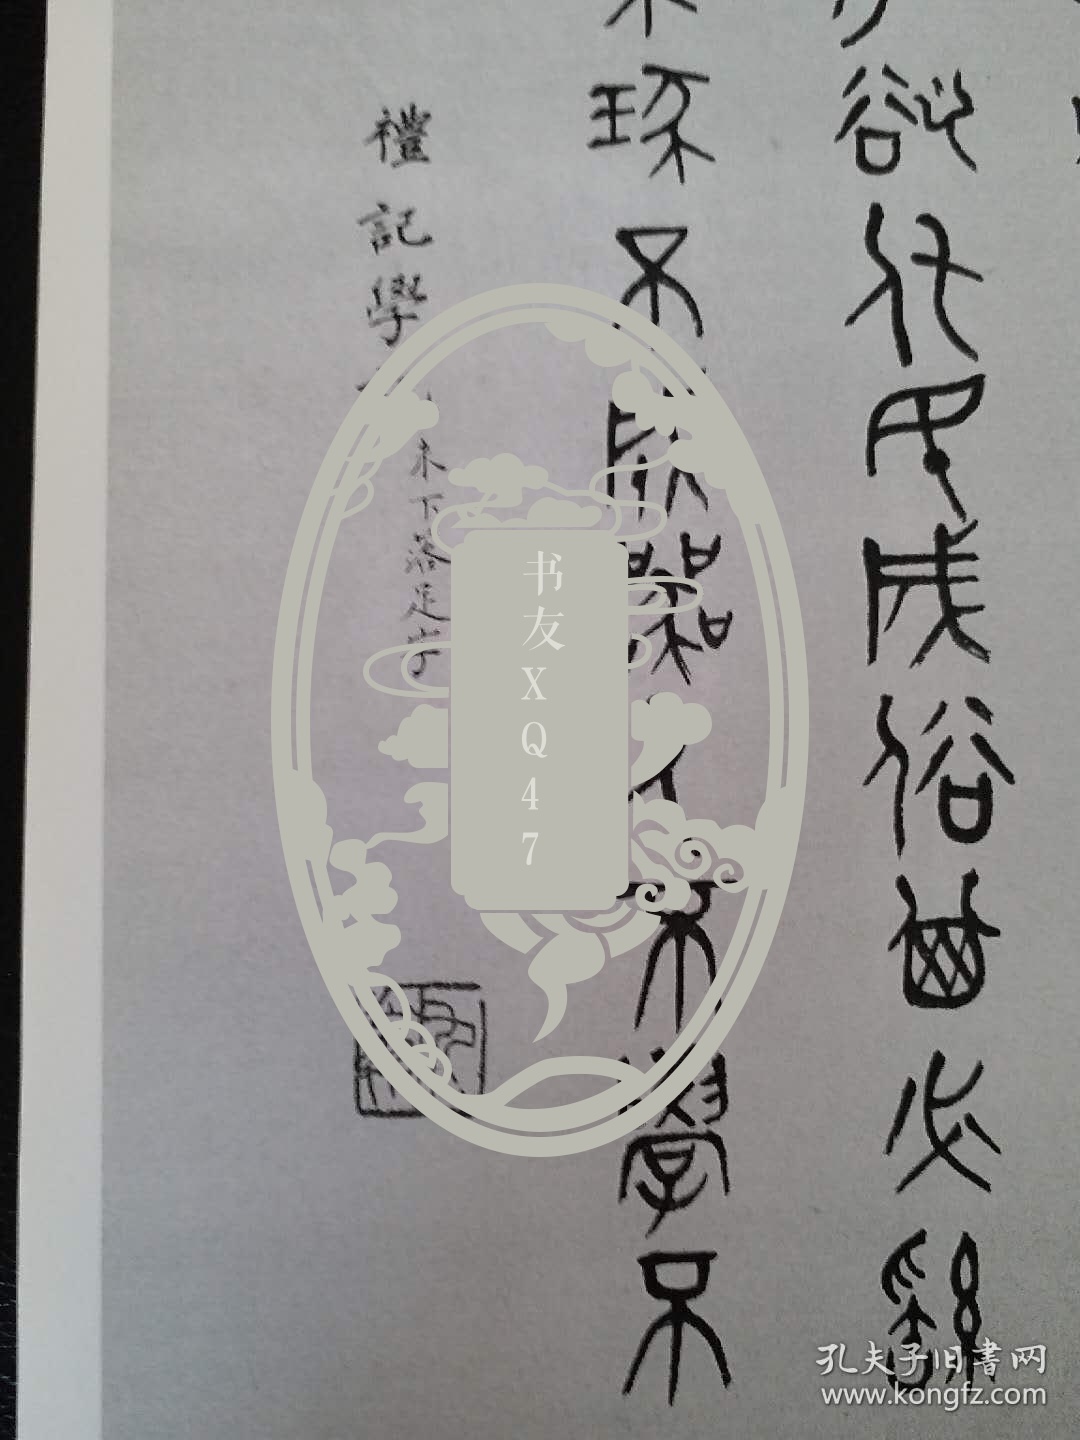 欲化民成俗其必繇
琢不成器人不學不
禮記學
未下落足字
书友XQ47
孔夫子旧書网
www.kongfz.com